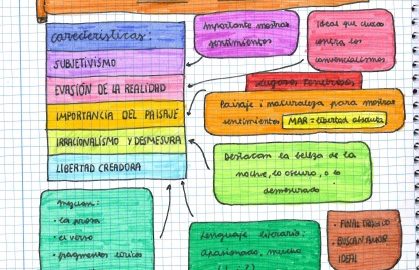 características:
SUBJETIVISMO
EVASIÓN DE LA REALIDAD
IMPORTANCIA DEL PAISAJE
IRRACIONALISMO Y DESMESURA
LIBERTAD CREADORA
importante mostrar
sentimientos
Ideal que choca
contra los
convencionalismos
lugares tenebrosos
Paisaje i naturaleza para mostrar
sentimientos MAR = libertad absoluta
Destacan la belleza de la
noche, lo oscuro, o lo
desmesurado
Mezclan:
• la prosa
• el verso
• fragmentos líricos
Lenguaje literario:
apasionado, mucho
• FINAL TRÁGICO
• BUSCAN AMOR
IDEAL